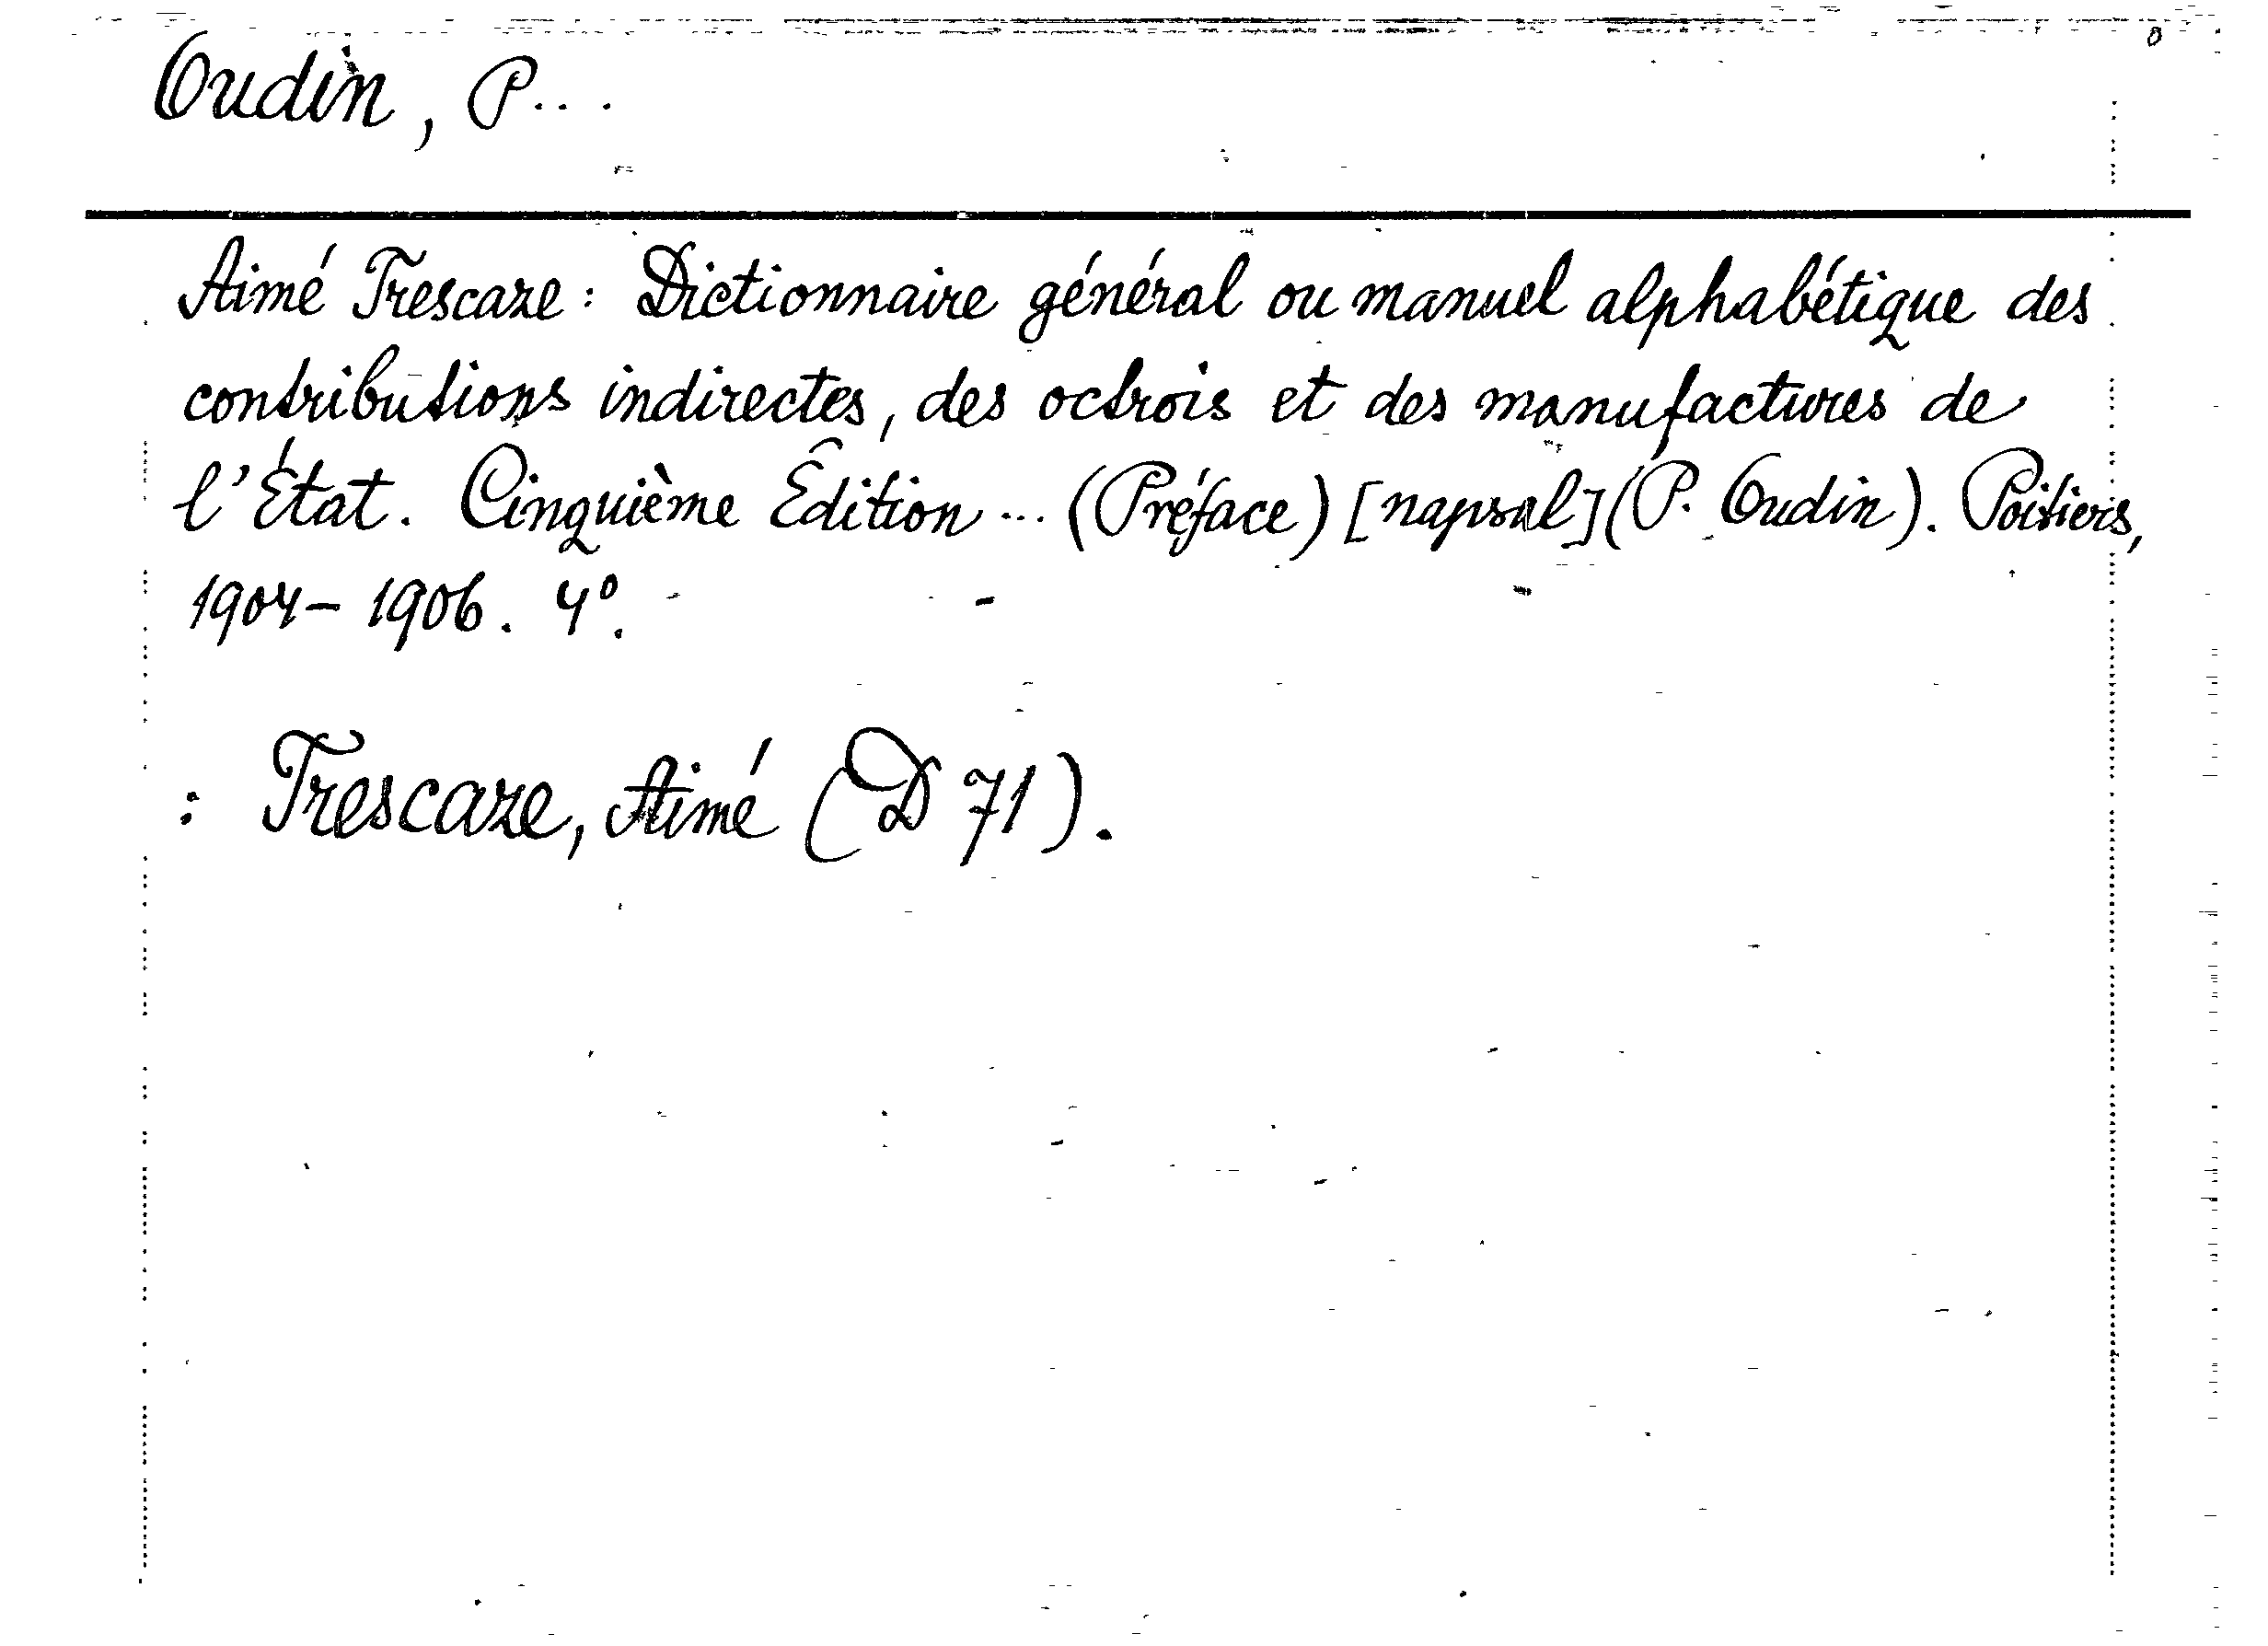 Oudin, P...
Aimé Trescaze: Dictionnaire général ou manuel alphabétique des
contributions indirectes, des octrois et des manufactures de
l'État. Cinquième Édition ... (Préface) [napsal] (P. Oudin). Poitiers,
1904-1906. 4°.
: Trescaze, Aimé (D 71).